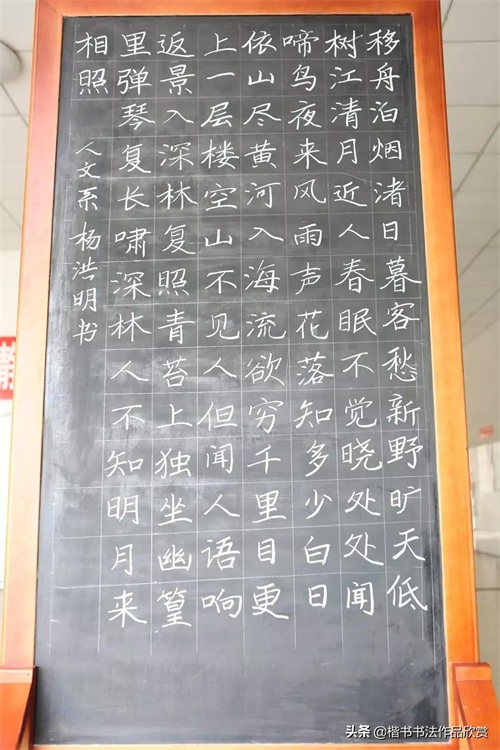 移舟泊烟渚日暮客愁新野旷天低
树江清月近人春眠不觉晓处处闻
啼鸟夜来风雨声花落知多少白日
依山尽黄河入海流欲穷千里目更
上一层楼空山不见人但闻人语响
返景入深林复照青苔上独坐幽篁
里弹琴复长啸深林人不知明月来
相照 人文系杨洪明书
头条 @楷书书法作品欣赏